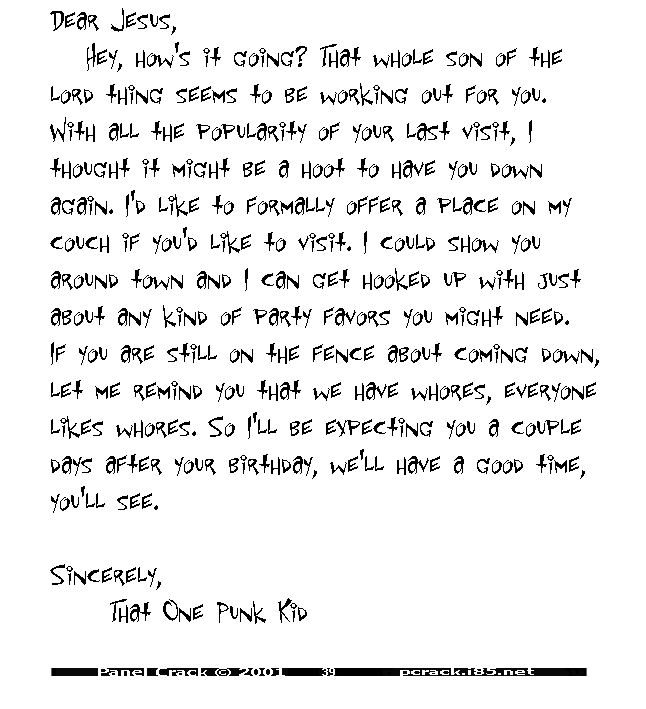 Dear Jesus,
Hey, how's it going? That whole son of the
lord thing seems to be working out for you.
With all the popularity of your last visit, I
thought it might be a hoot to have you down
again. I'd like to formally offer a place on my
couch if you'd like to visit. I could show you
around town and I can get hooked up with just
about any kind of party favors you might need.
If you are still on the fence about coming down,
let me remind you that we have whores, everyone
likes whores. So I'll be expecting you a couple
days after your birthday, we'll have a good time,
you'll see.
Sincerely,
That One Punk Kid
Panel Crack © 2001 39 pcrack.i85.net